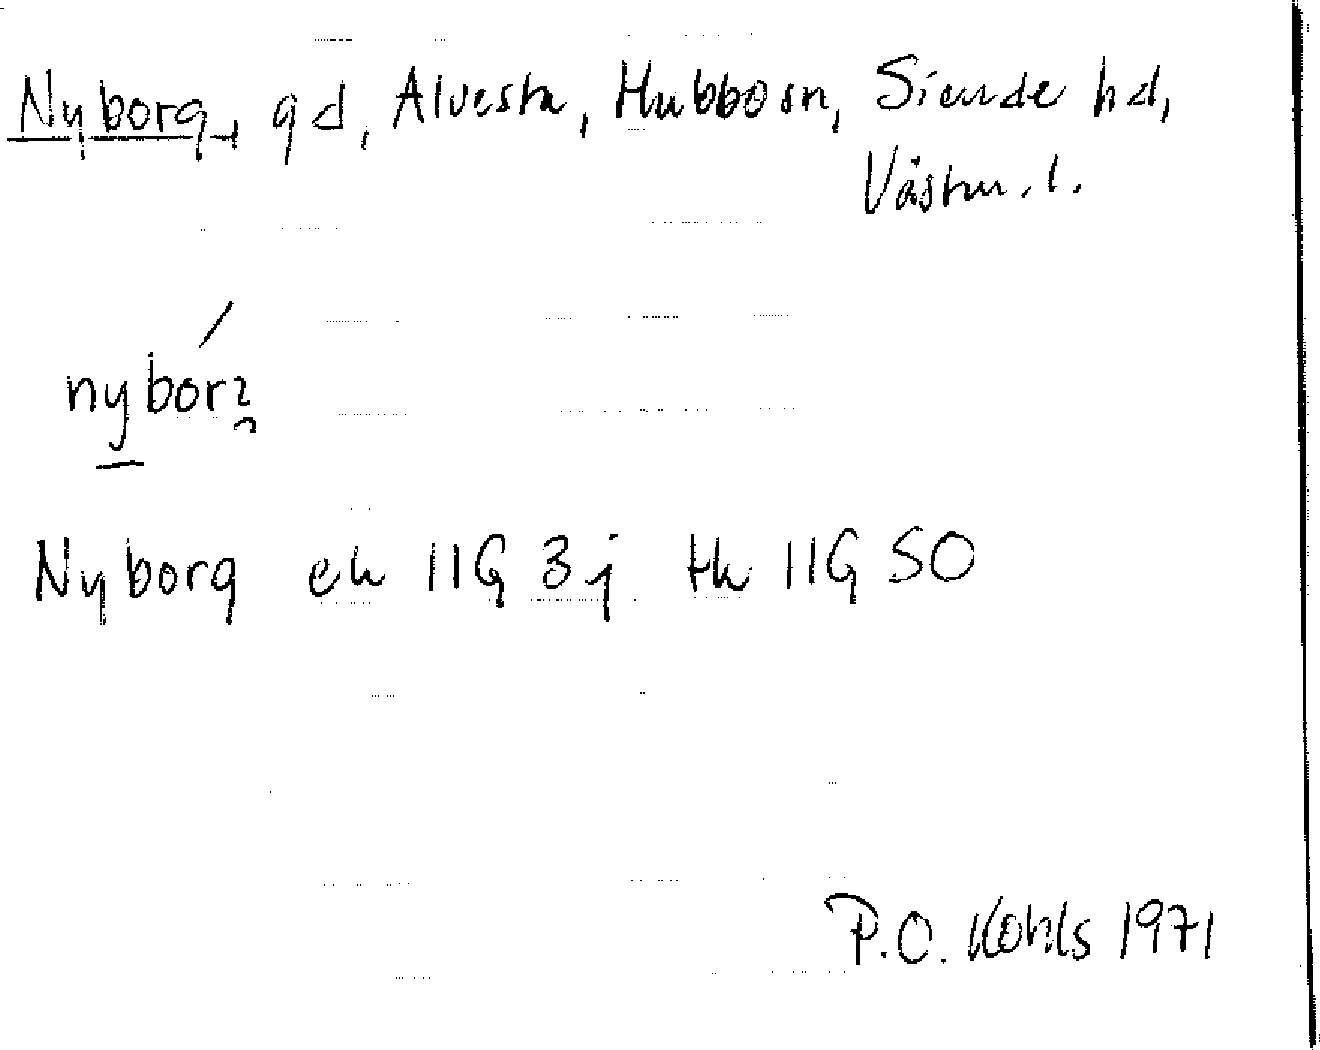 Nyborg, gd, Alvesta, Hubbo sn, Siende hd,
Västm. l.
nybórg
Nyborg ek 11G 3j tk 11G SO
P.O. Kohls 1971